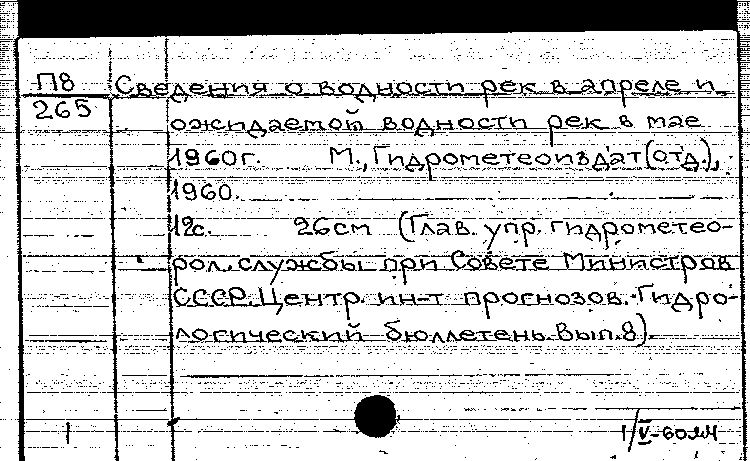 П8 Сведения о водности рек в апреле и
265 ожидаемой водности рек в мае
1960г. М., Гидрометеоиздат (отд.),
1960.
12с. 26см (Глав. упр. гидрометео-
рол. службы при Совете Министров
СССР. Центр. ин-т прогнозов. Гидро-
логический бюллетень. Вып. 8).
1/V-60